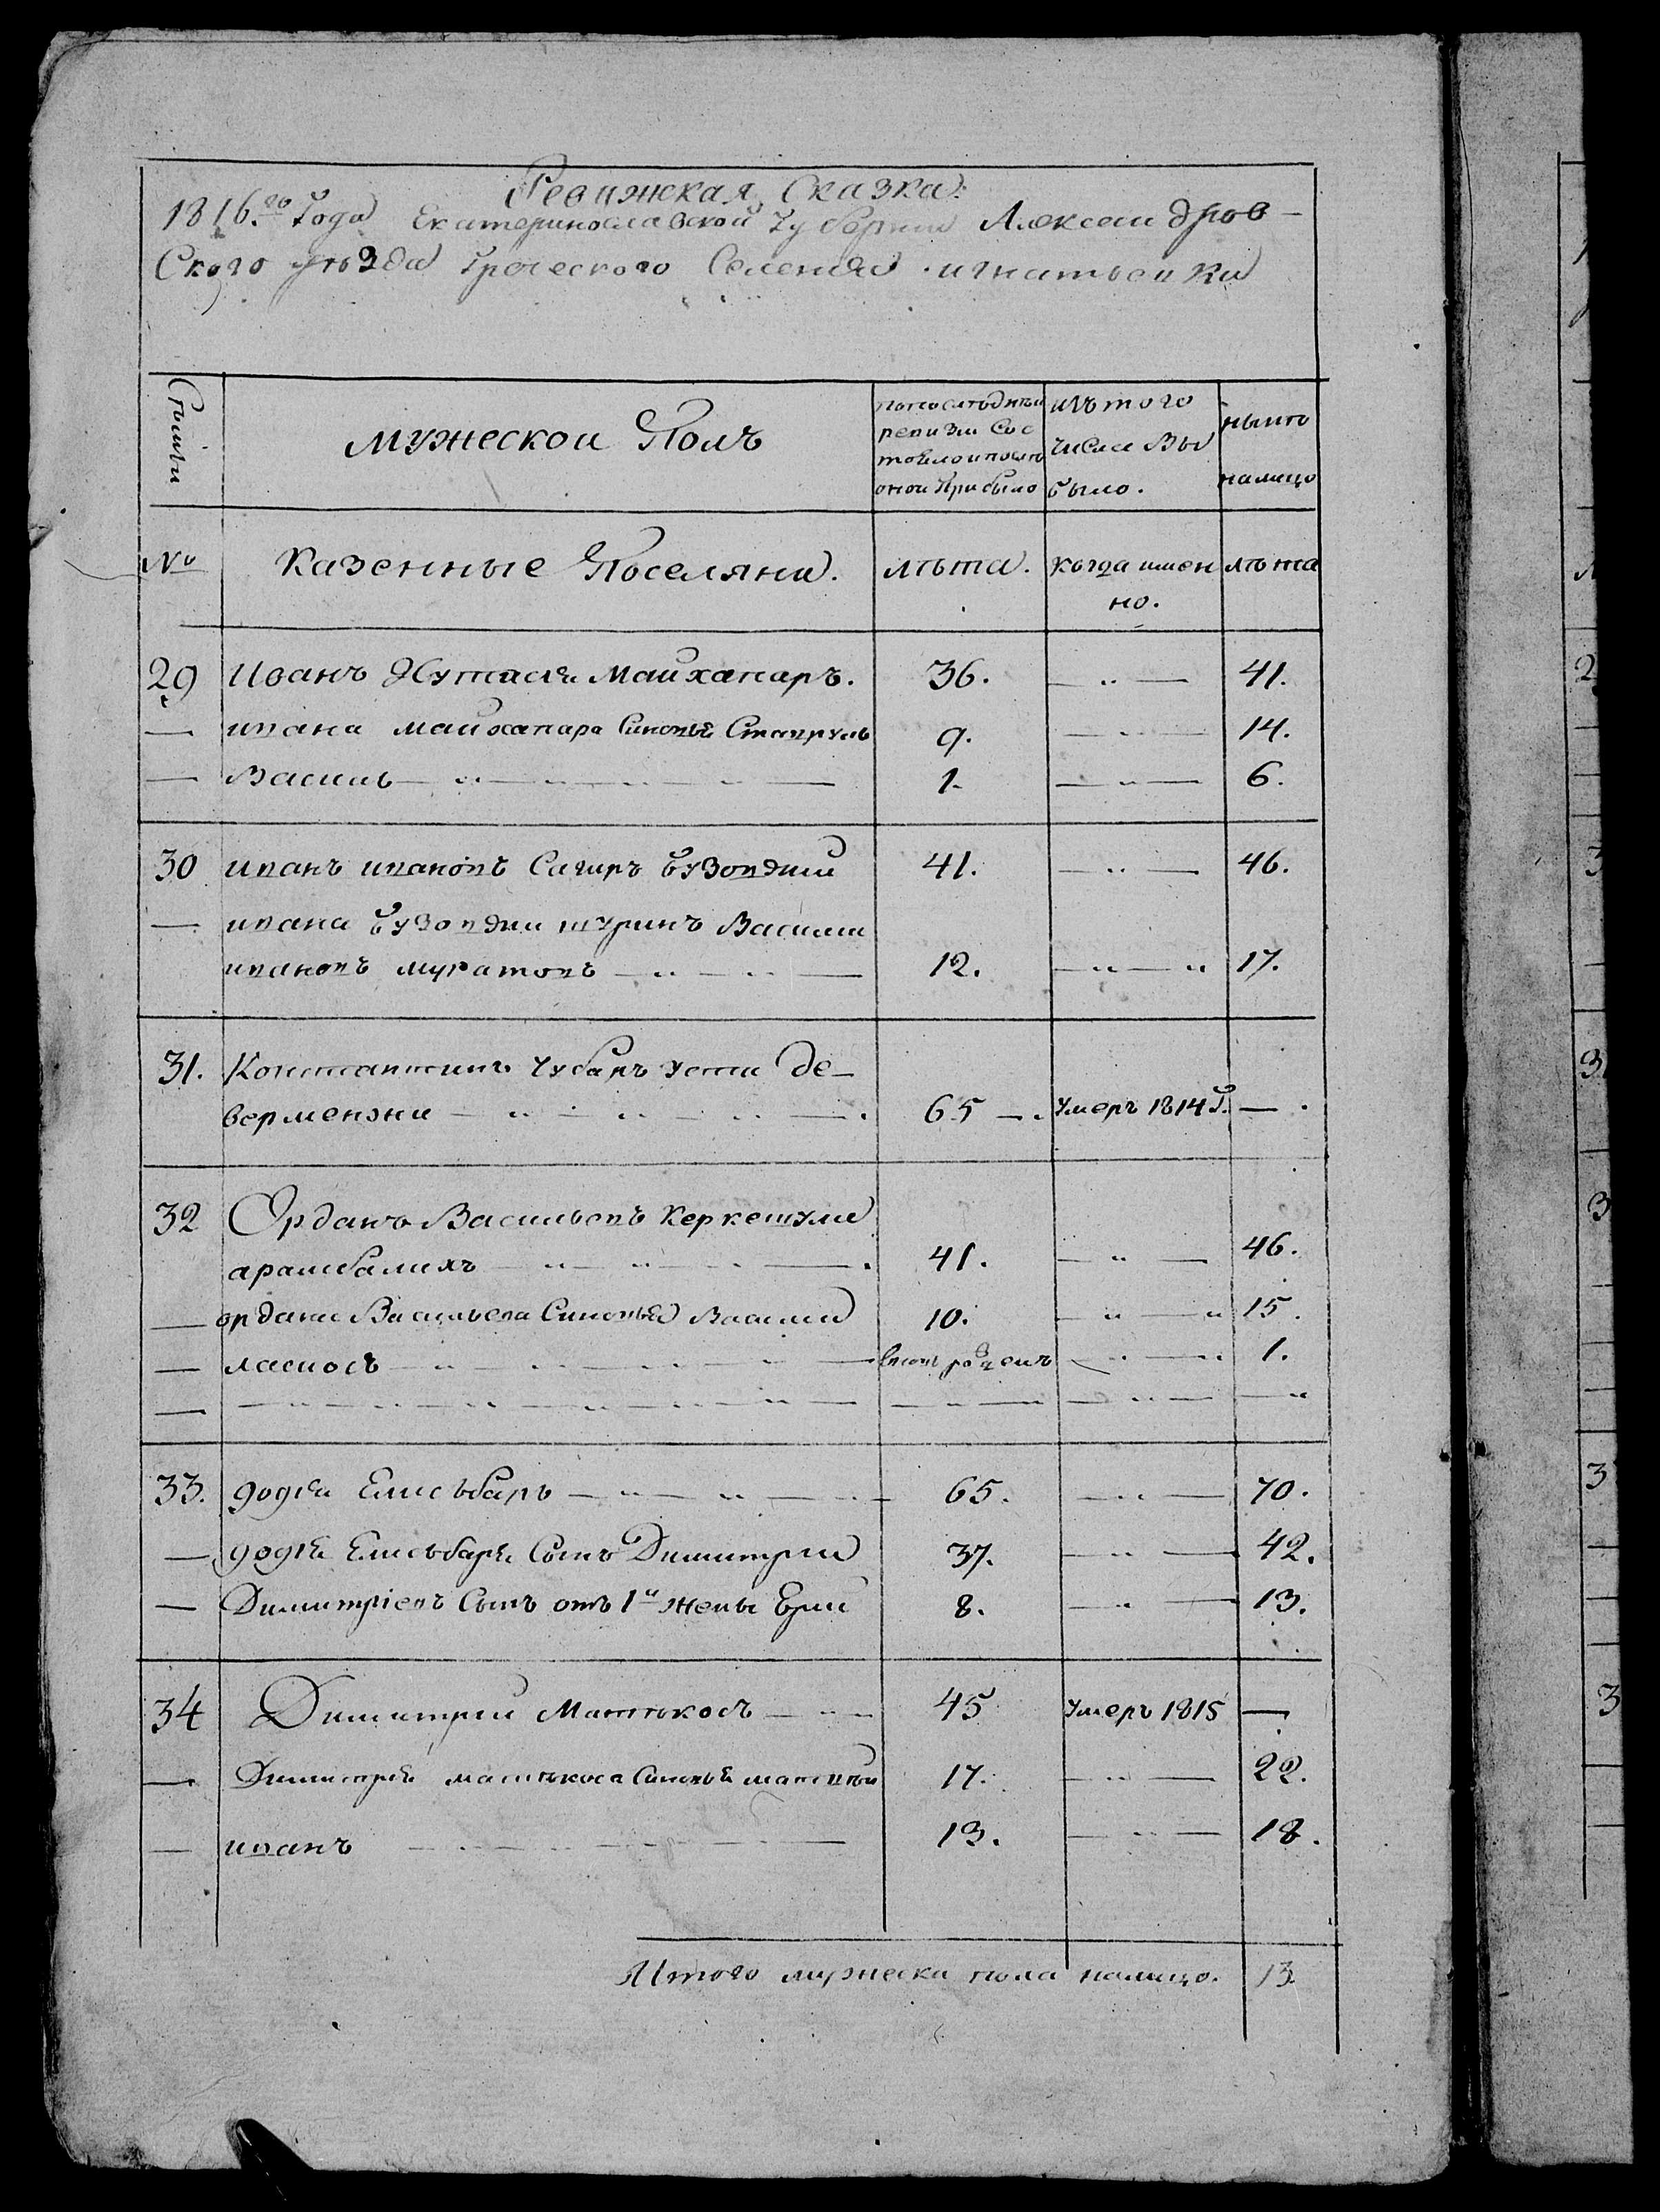 Ревижская Сказка:
1816.го Года Екатеринославской Губернии Александров–
Ского уѣзда Греческого Селения игнатьевки
Сѣмьи
мужескои Полъ
попослѣднѣи ревизии Сос тояло ипослѣ онои Прибыло
изъ того числа Вы было.
нынѣ налицо
№
Казенные Поселяня.
лѣта.
когда имен но.
лѣта
29 Иванъ Майхапаръ. 36. — „ — 41.
— ивана майхапара Синовья 9. — „ — 14.
— Василь — „ — 1. — „ — 6.
30 иванъ ивановъ Сагиръ бузовджи 41. — „ — 46.
— ивана бузовджи шуринъ Василии
ивановъ муратовъ — „ — 12. — „ — „ 17.
31. Константинъ Чубаръ усти Де–
верменжи — „ — 65 —. Умеръ 1814 г. — .
32 Орданъ Васильевъ
41. — „ — 46.
— ордана Васильева Синовья Василии 10. — „ — „ 15.
— — „ — рожденъ — „ — 1.
— — „ — „ — — „ — — „ — — „
33. Елисъбаръ — „ — 65. — „ — 70.
— Елисъбаря Сынъ Димитрии 37. — „ — 42.
— Димитріевъ Сынъ отъ 1й жены 8. — „ — 13.
34 Димитрии Матѣкосъ — „ 45 Умеръ 1815 —
— Димитрея матѣкоса Синовья матвѣи 17. — „ — 22.
— иванъ — „ — 13. — „ — 18.
Итого мужеска пола налицо. 13